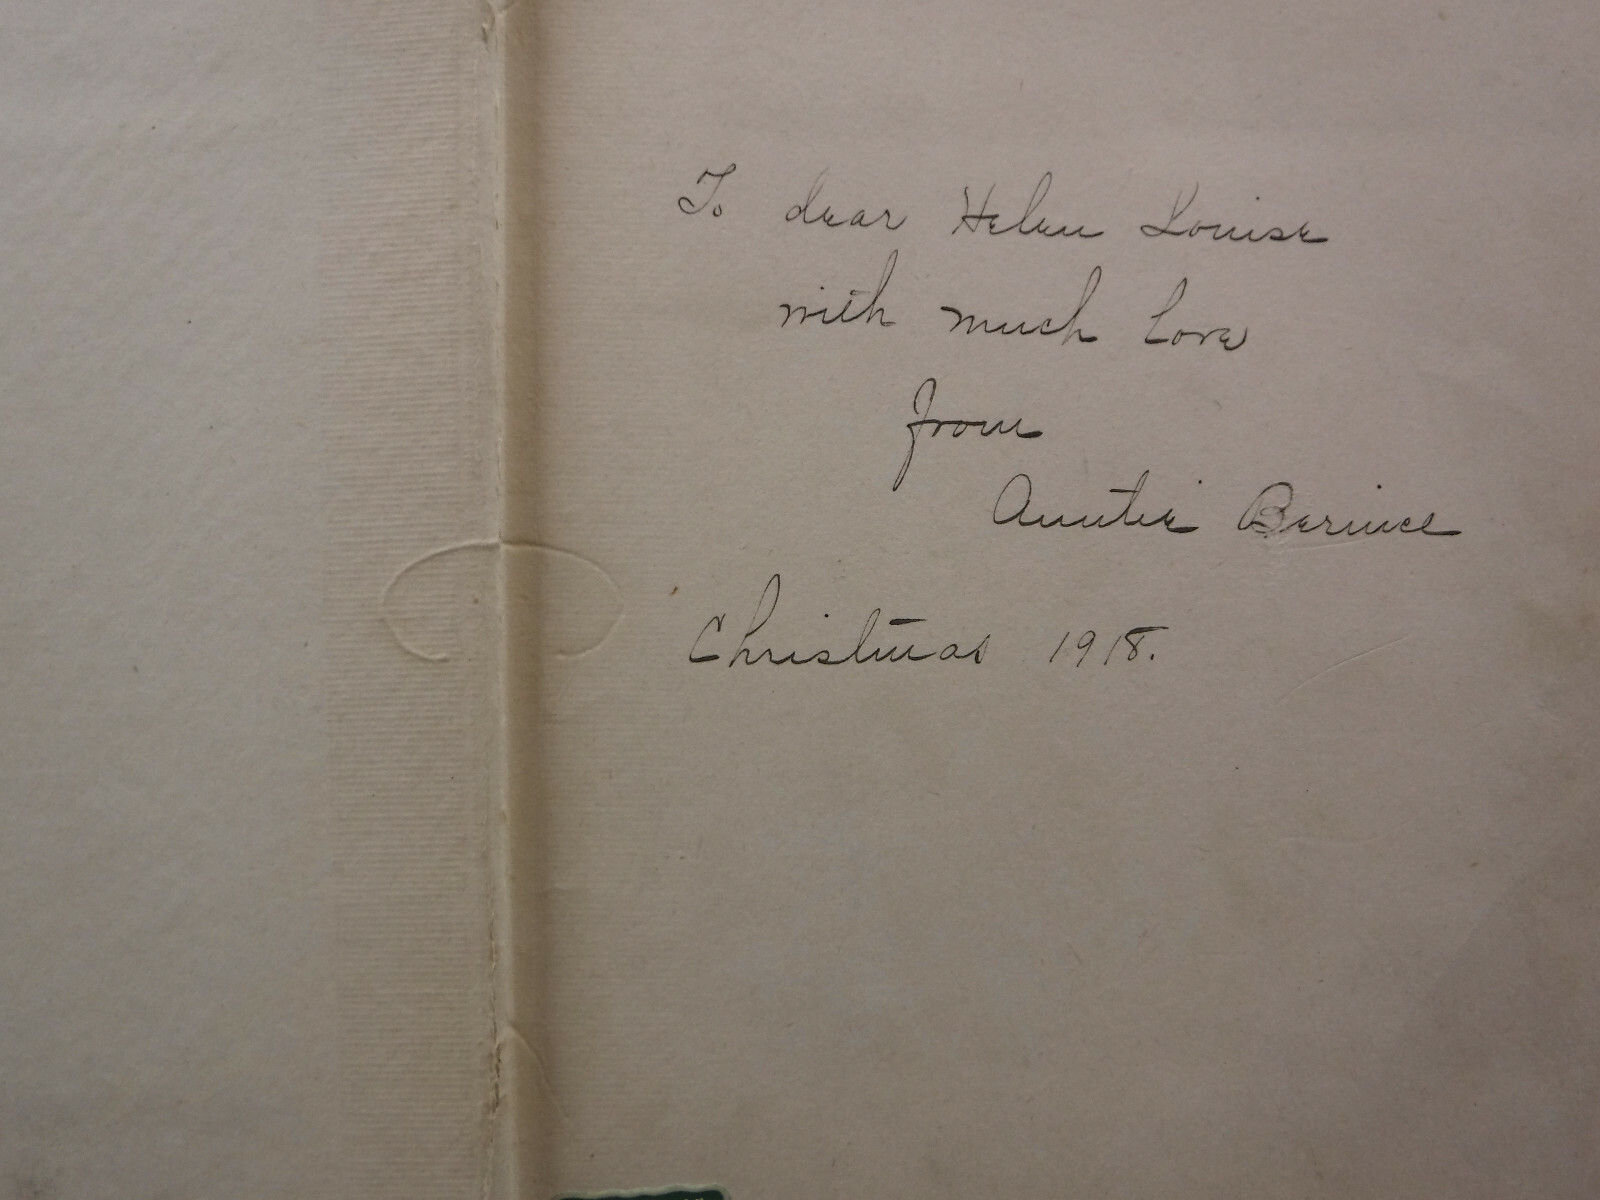 To dear Helen Louise
with much love
from
Auntie Bernice
Christmas 1918.